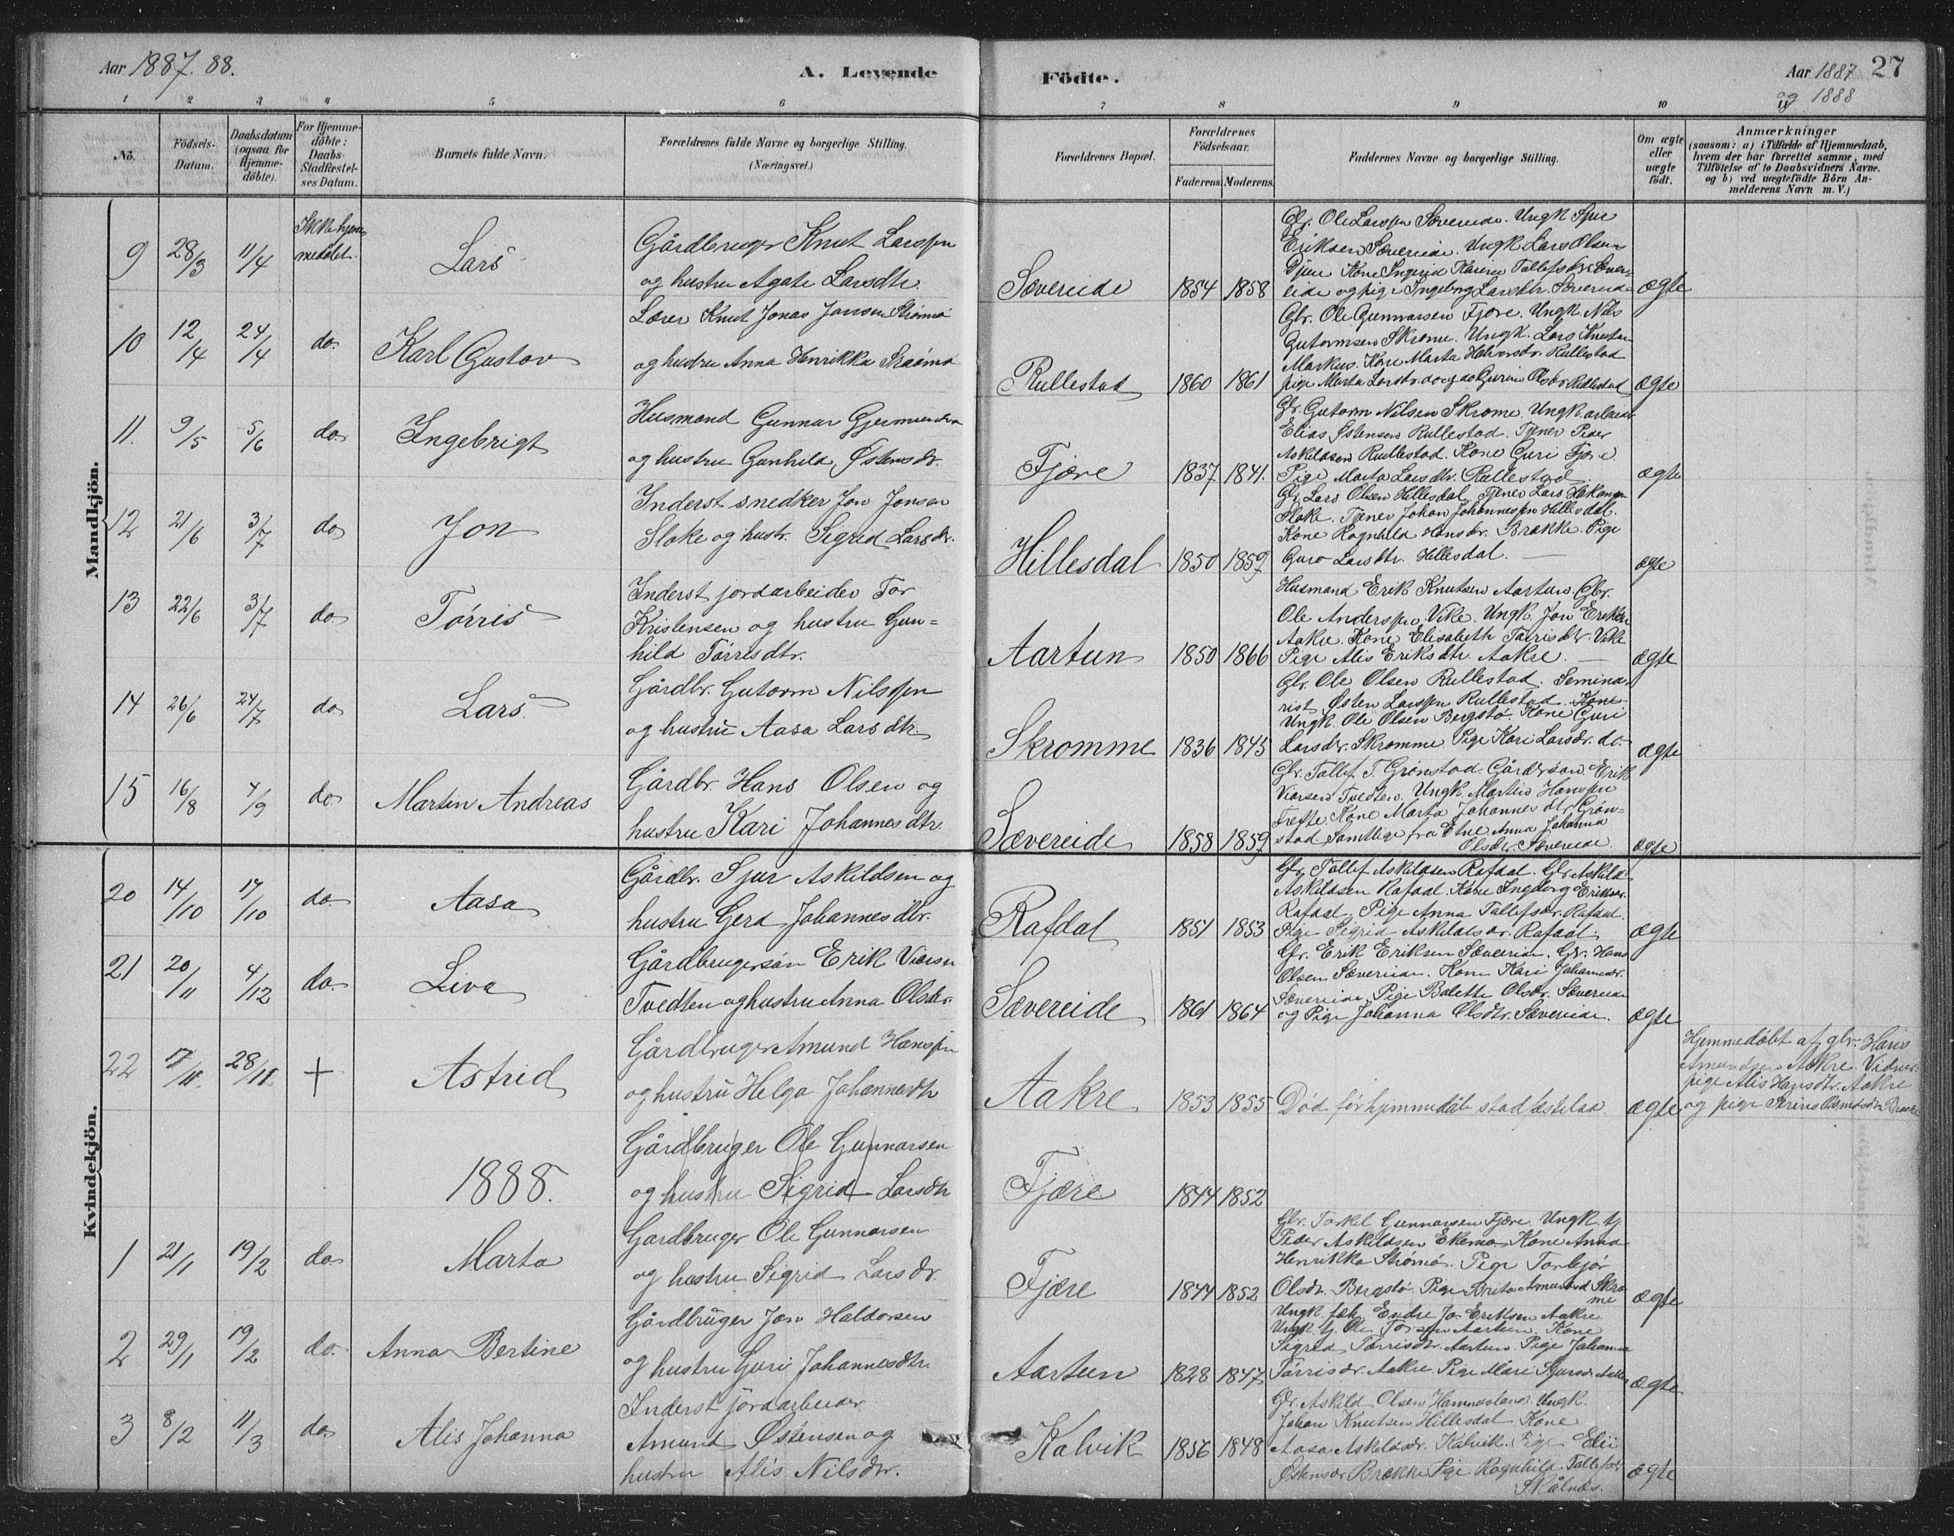 Aar 1887.88.
A. Levende
Födte.
Aar 1887 27
og 1888
1 2 3 4 5 6 7 8 9 10 11
No.
Födsels-Datum.
Daabsdatum (ogsaa for Hjemmedöbte).
For Hjemmedöbte: Daabs-Stadfæstelses Datum.
Barnets fulde Navn.
Forældrenes fulde Navne og borgerlige Stilling. (Næringsvei.)
Forældrenes Bopæl.
Forældrenes Födselsaar.
Faderens. Moderens.
Faddernes Navne og borgerlige Stilling.
Om ægte eller uægte födt.
Anmærkninger
(saasom: a) i Tilfælde af Hjemmedaab, hvem der har forrettet samme, med Tilföielse af to Daabsvidners Navne, og b) ved uægtefödte Börn Anmelderens Navn m. V.)
Mandkjön.
9 28/3 11/4 Ikke hjemmedøbt. Lars
Gårdbruger Knut Larssen
og hustru Agate Larsdtr.
Sævereide 1854 1858
Gbr. Ole Larssen Sævereide. Ungk. Sjur
Eriksen Sævereide. Ungk. Lars Olsen
Kone Ingrid Karene
og pige Ingeborg Larsdtr. Sævereide
ægte
10 12/4 24/4 do. Karl Gustav
Lærer Knut Jonas Jansen Strømø
og hustru Anna Henrikka Strømø
Rullestad 1860 1861
Gbr. Ole Gunnarsen Fjære. Ungk. Nils
Gutormsen Skrome. Ungk. Lars Knutsen
Markus. Kone Marta Rullestad
pige Marta Larsdtr. Rullestad
ægte
11. 9/5 5/6 do Ingebrigt
Husmand Gunnar
og hustru Gunhild Østensdr.
Fjære 1837 1841.
Gbr. Gutorm Nilsen Skrome. Ungk. arbeider
Elias Østensen Rullestad. Tjener Peder
Askildsen Rullestad. Kone Guri Fjære
Pige Marta Larsdtr. Rullestad
ægte
12 21/6 3/7 do Jon
Inderst snedker Jon Jonsen
Sloke og hustr. Sigrid Larsdr.
Hillesdal 1850 1859
Gbr. Lars Olsen Hillesdal. Tjener Lars
Sloke. Tjener Johan Johannessen Hillesdal.
Kone Ragnhild Hansdr. Brække. Pige
Guro Larsdtr. Hillesdal.
ægte
13 22/6 3/7 do Tørris
Inderst jordarbeider Tor
Kristensen og hustru Gun=
hild Tørrisdtr.
Aartun 1850 1866
Husmand Erik Knutsen Aartun. Gbr.
Ole Anderssen Vike. Ungk. Jon Eriksen
Aakre. Kone Elisabeth Tørrisdr. Vike
Pige Alis Eriksdtr. Aakre.
ægte
14 26/6 24/7 do Lars
Gårdbr. Gutorm Nilssen
og hustru Aasa Larsdtr.
Skromme 1836 1845
Gbr. Ole Olsen Rullestad. Semina-
rist Østen Larssen Rullestad. Kone
Ungk. Ole Olsen Bergstø. Kone Guri
Larsdr. Skromme Pige Kari Larsdr. do.
ægte
15 16/8 4/9 do Martin Andreas
Gårdbr. Hans Olsen og
hustru Kari Johannesdtr.
Sævereide 1858 1859
Gbr. Tollef T. Grønstad. Gårdbrsøn Erik
Viarsen Tvedten. Ungk. Martin Hanssen
Kone Marta Johannesdtr. Grøn-
stad Samtlige fra Etne Anna Johanna
Olsdtr. Sævereide.
ægte
Kvindekjön.
20 14/10 17/10 do. Aasa
Gårdbr. Sjur Askildsen og
hustru Gerd Johannesdtr.
Rafdal 1851 1853
Gbr. Tollef Askildsen Rafdal. Gbr. Askild
Askildsen Rafdal. Kone Ingborg Eriksdr.
Rafdal. Pige Anna Tollefsdr. Rafdal.
Pige Sigrid Askildsdr. Rafdal.
ægte
21 20/11 4/12 do. Liva
Gårdbrugersøn Erik Viarsen
Tvedten og hustru Anna Olsdtr.
Sævereide 1861 1864
Gbr. Erik Eriksen Sævereide. Gbr. Hans
Olsen Sævereide. Kone Kari Johannesdr.
Sævereide. Pige Bolette Olsdr. Sævereide
og Pige Johanna Olsdtr. Sævereide.
ægte
22 17/11. 28/11. + Astrid
Gårdbruger Amund Hanssen
og hustru Helga Johannesdtr
Aakre 1853 1855
Død før hjemmedåb. stadfæstelse
ægte
Hjemmedøbt af gbr. Hans
Amundsen Aakre. Vidner
pige Alis Hansdtr. Aakre
og pige
1888.
Gårdbruger Ole Gunnarsen
og hustru Sigrid Larsdtr
Fjære 1844 1852
1 21/1 19/2 do Marta
Gårdbruger Ole Gunnarsen
og hustru Sigrid Larsdr.
Fjære 1844 1852
Gbr. Torkel Gunnarsen Fjære. Ungk. g.
Peder Askildsen Ekemo. Kone Anna
Henrikka Strømø. Pige Torbjør
Olsdr. Bergstø. Pige Brita Amundsd. Skro-
me
ægte
2 29/1 19/2 do. Anna Bertine
Gårdbruger Jon Haldorsen
og hustru Guri Johannesdtr.
Aartun 1828 1847
Ungk. Endre Jo. Eriksen Aakre
Ungk. g. Ole Torsen Aartun. Kone
Sigrid Tørrisdr. Aartun. Pige Johanna
Tørrisdr. Aakre Pige Mari Sjursdr.
ægte
3 8/2 11/3 do Alis Johanna
Inderst jordarbeider
Amund Østensen og
hustru Alis Nilsdr.
Kalvik 1856 1848
Gbr. Askild Olsen Hamnesland. Ungk.
Johan Knutsen Hillesdal. Kone
Aasa Askildsdr. Kalvik. Pige Eli
Østensdr. Brække. Pige Ragnhild Tollefsdr
Skålnes.
ægte